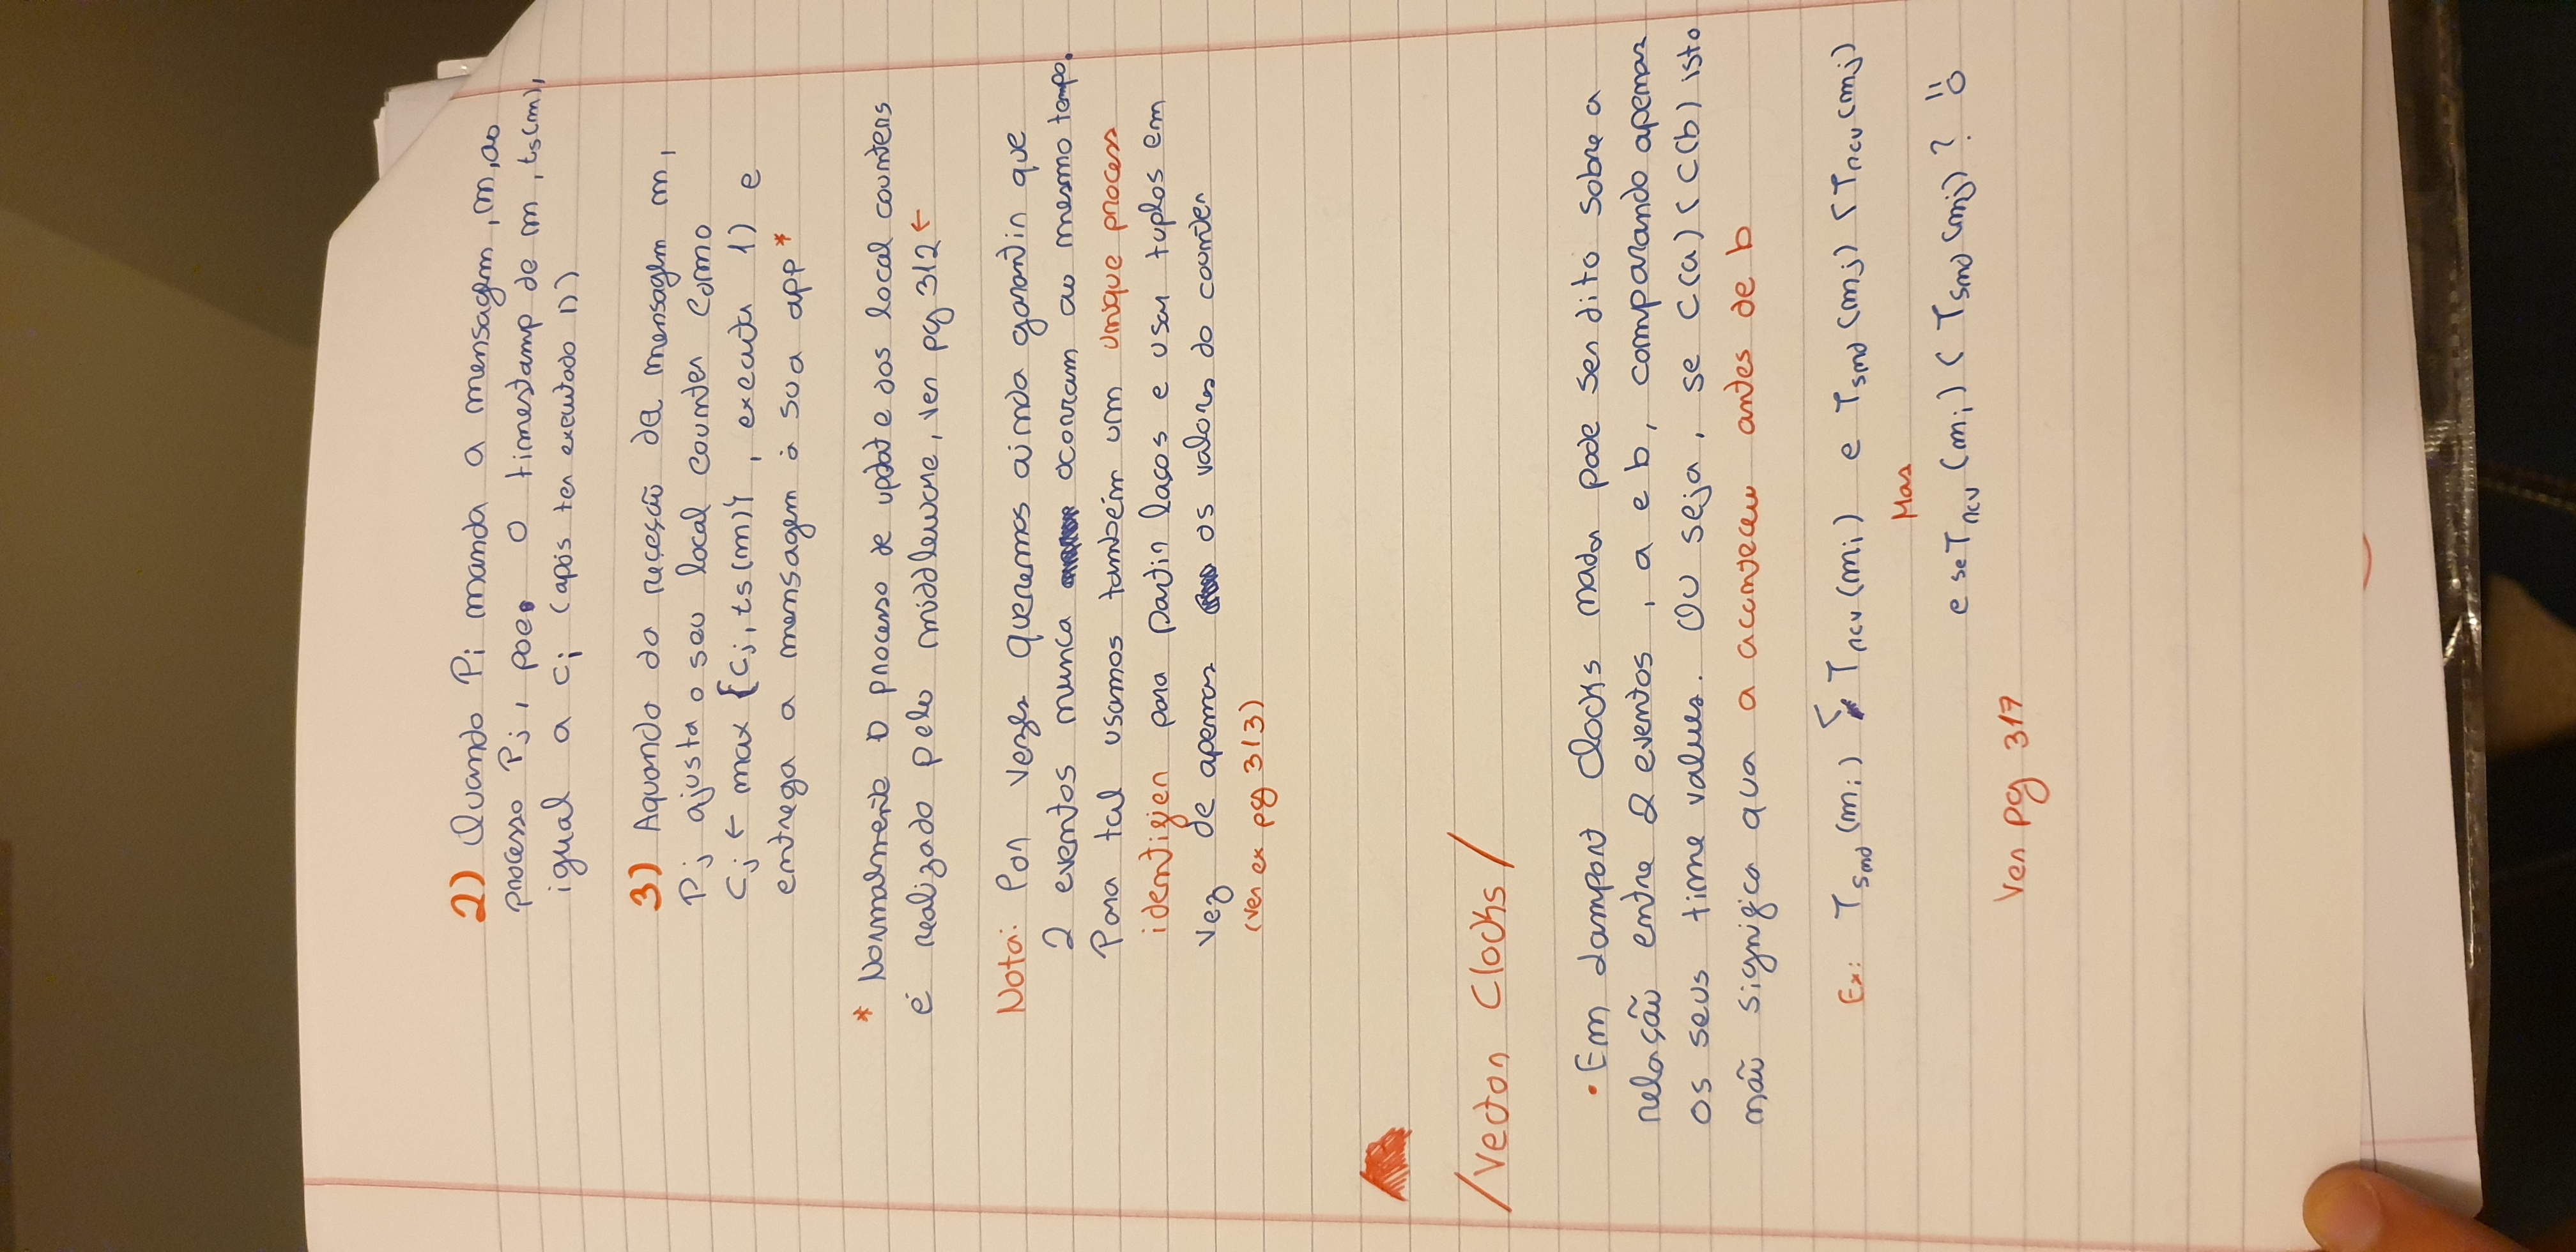 2) Quando Pi manda a mensagem, m, ao
processo Pj, poe o timestamp de m, ts(m),
igual a Ci (após ter executado 1))
3) Aquando da receção da mensagem m,
Pj ajusta o seu local counter como
Cj ← max {Cj, ts(m)}, executa 1) e
entrega a mensagem à sua app *
* Normalmente o processo de update dos local counters
é realizado pelo middleware, ver pg 312 ←
Nota: Por vezes queremos ainda garantir que
2 eventos nunca ocorram ao mesmo tempo.
Para tal usamos também um unique process
identifier para partir laços e usar tuplos em
vez de apenas os valores do counter
(ver ex pg 313)
/Vector Clocks/
• Em Lamport Clocks nada pode ser dito sobre a
relação entre 2 eventos, a e b, comparando apenas
os seus time values. Ou seja, se C(a) < C(b) isto
não significa que a aconteceu antes de b
Ex: Tsnd (mi) < Trcv (mi) e Tsnd (mj) < Trcv (mj)
Mas
e se Trcv (mi) < Tsnd (mj)?
Ver pg 317